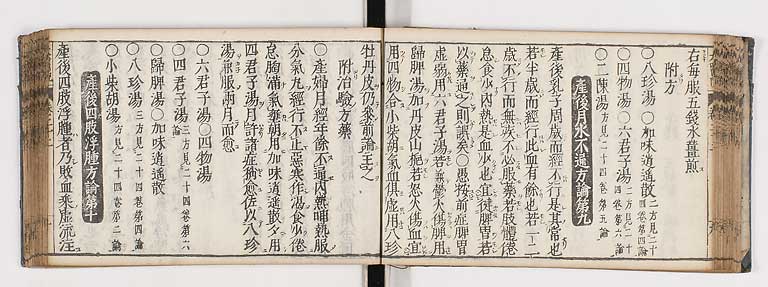 右每服五錢水一盞煎
附方
○八珍湯　○加味逍遙散二方見二十四卷第四論
○四物湯　○六君子湯二方見二十四卷第六論
○二陳湯方見二十四卷第五論
產後月水不通方論第九
產後乳子周歲而經不行是其常也
若半歲而經行此血有餘也若一二
歲不行而無疾不必服藥若肢體倦
怠食少內熱是血少也宜徤脾胃若
以藥通之則誤矣○愚按前症脾胃
虛弱用六君子湯若兼鬱火傷脾用
歸脾湯加丹皮山梔若怒火傷血宜
用四物合小柴胡氣血俱虛用八珍
牡丹皮仍叅前論主之
附治驗方藥
○產婦月經年餘不通內熱晡熱服
分氣九經行不止惡寒作渴食少倦
怠胸滿氣壅朝用加味逍遙散夕用
四君子湯月許諸症稍愈佐以八珍
湯兼服兩月而愈
○六君子湯　○四物湯
○四君子湯三方見二十四卷第六論
○歸脾湯　○加味逍遙散
○八珍湯三方見二十四卷第四論
○小柴胡湯方見二十四卷第二論
產後四肢浮腫方論第十
產後四肢浮腫者乃敗血乘虛流注